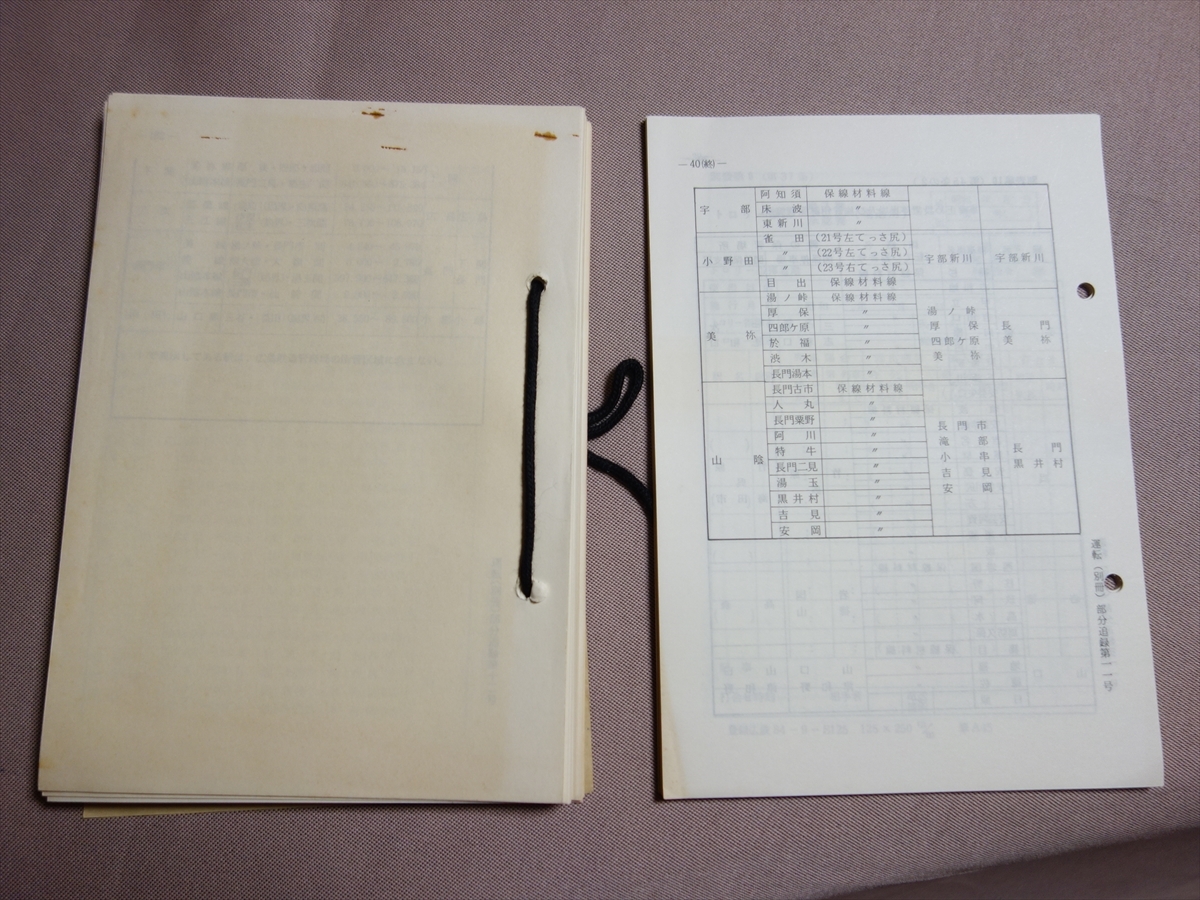 ―40(終)―
宇部 阿知須 保線材料線
床波 〃
東新川 〃
小野田 雀田 (21号左てっさ尻) 宇部新川 宇部新川
〃 (22号左てっさ尻)
〃 (23号右てっさ尻)
目出 保線材料線
美祢 湯ノ峠 保線材料線 湯ノ峠 長門
厚保 〃 厚保 美祢
四郎ケ原 〃 四郎ケ原
於福 〃 美祢
渋木 〃
長門湯本 〃
山陰 長門古市 保線材料線 長門市 長門
人丸 〃 滝部 黒井村
長門粟野 〃 小串
阿川 〃 吉見
特牛 〃 安岡
長門二見 〃
湯玉 〃
黒井村 〃
吉見 〃
安岡 〃
運転(別冊)部分追録第一一号